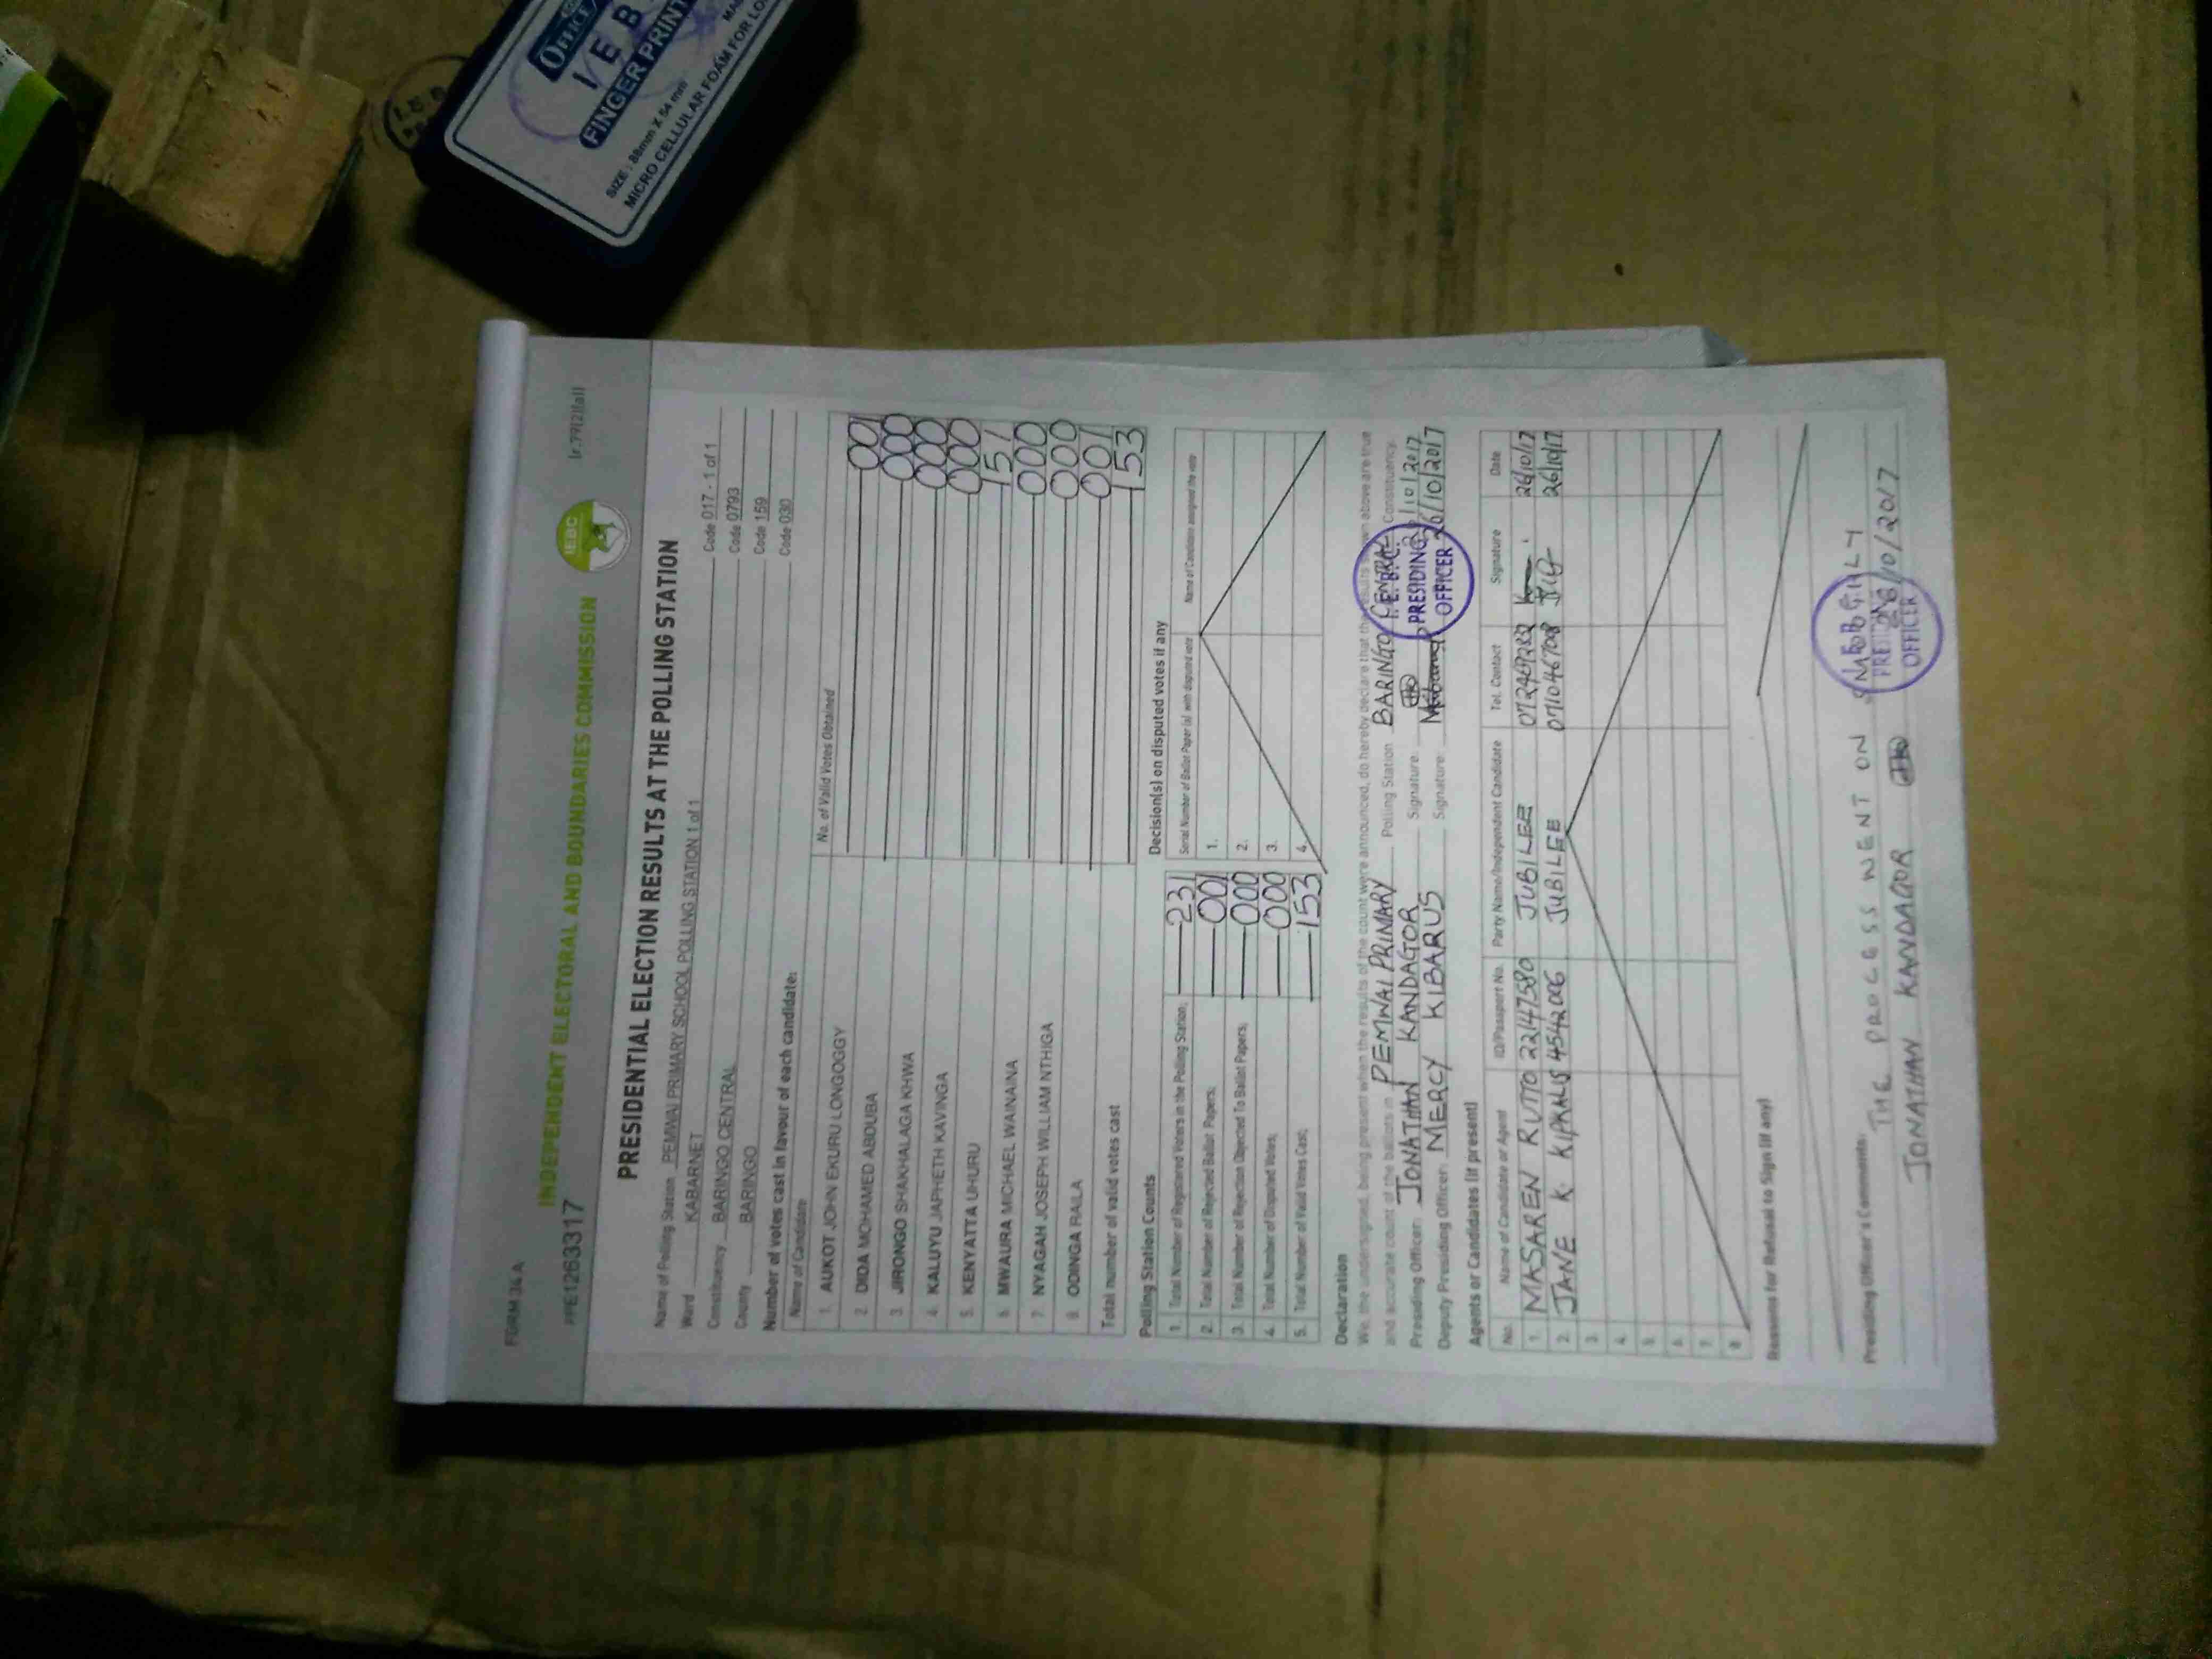 OFFICE
I E B
FINGER PRINT
SIZE : 88mm X 54 mm
MICRO CELLULAR FOAM FOR
FORM 34 A
INDEPENDENT ELECTORAL AND BOUNDARIES COMMISSION
IEBC
PRESIDENTIAL ELECTION RESULTS AT THE POLLING STATION
Name of Polling Station PEMWAI PRIMARY SCHOOL POLLING STATION 1 of 1 Code 017 - 1 of 1
Ward KABARNET Code 0793
Constituency BARINGO CENTRAL Code 159
County BARINGO Code 030
Number of votes cast in favour of each candidate:
Name of Candidate No. of Valid Votes Obtained
1. AUKOT JOHN EKURU LONGOGGY 001
2. DIDA MOHAMED ABDUBA 000
3. JIRONGO SHAKHALAGA KHWA 000
4. KALUYU JAPHETH KAVINGA 000
5. KENYATTA UHURU 151
6. MWAURA MICHAEL WAINAINA 000
7. NYAGAH JOSEPH WILLIAM NTHIGA 000
8. ODINGA RAILA 001
Total number of valid votes cast 153
Polling Station Counts
1. Total Number of Registered Voters in the Polling Station; 231
2. Total Number of Rejected Ballot Papers; 001
3. Total Number of Rejection Objected To Ballot Papers; 000
4. Total Number of Disputed Votes; 000
5. Total Number of Valid Votes Cast; 153
Decision(s) on disputed votes if any
Serial Number of Ballot Paper (s) with disputed vote Name of Candidate assigned the vote
1.
2.
3.
4.
Declaration
We, the undersigned, being present when the results of the count were announced, do hereby declare that the results shown above are true
and accurate count of the ballots in PEMWAI PRIMARY Polling Station BARINGO CENTRAL Constituency.
Presiding Officer: JONATHAN KANDAGOR Signature: /10/2017
Deputy Presiding Officer: MERCY KIBARUS Signature: 26/10/2017
I.E.B.C.
PRESIDING
OFFICER
Agents or Candidates (if present)
No. Name of Candidate or Agent ID/Passport No. Party Name/Independent Candidate Tel. Contact Signature Date
1. MASAREN RUTTO 22147580 JUBILEE 26/10/17
2. JANE K. 4542006 JUBILEE 071046708 26/10/17
3.
4.
5.
6.
7.
8.
Reasons for Refusal to Sign (if any)
Presiding Officer's Comments:
THE PROCESS WENT ON
JONATHAN KANDAGOR /10/2017
OFFICER